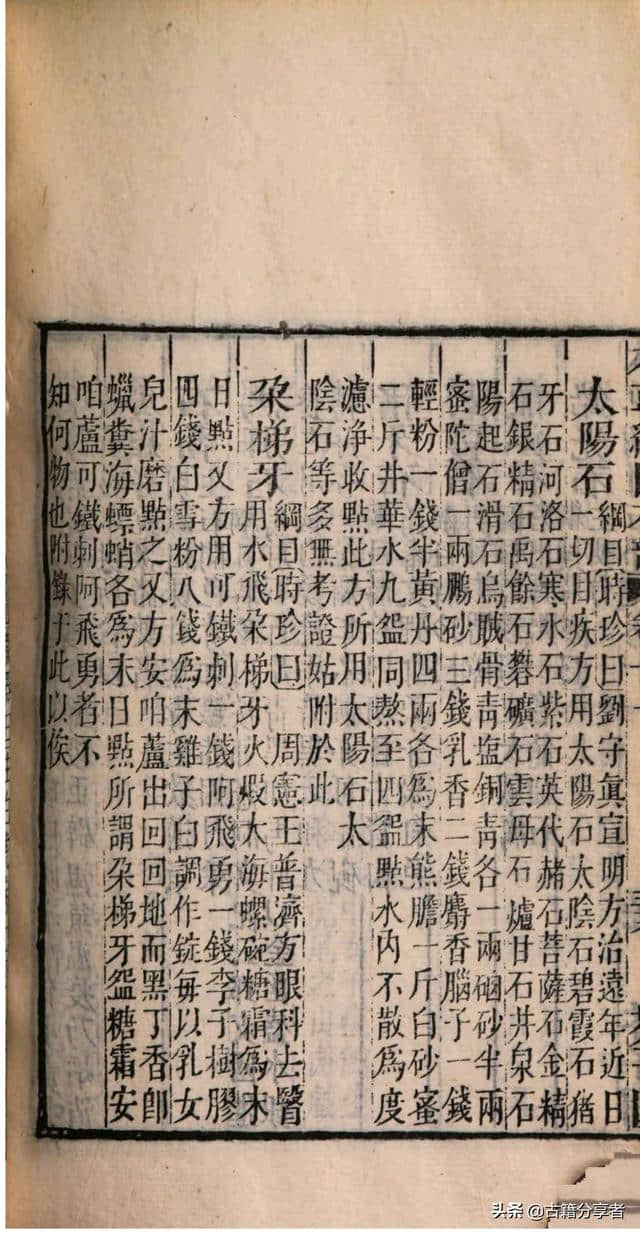 太陽石
綱目時珍曰劉守眞宣明方治遠年近日
一切目疾方用太陽石太陰石碧霞石猪
牙石河洛石寒水石紫石英代赭石菩薩石金精
石銀精石禹餘石礬礦石雲母石爐甘石井泉石
陽起石滑石烏賊骨靑塩銅靑各一兩硇砂半兩
蜜陀僧一兩鵬砂三錢乳香二錢麝香腦子一錢
輕粉一錢半黃丹四兩各爲末熊膽一斤白砂蜜
二斤井華水九盌同熬至四盌點水內不散爲度
濾淨收點此方所用太陽石太
陰石等多無考證姑附於此
朶梯牙
綱目時珍曰周憲王普濟方眼科去瞖
用水飛朶梯牙火煆大海螺碗糖霜爲末
日點又方用可鐵刺一錢阿飛勇一錢李子樹膠
四錢白雪粉八錢爲末雞子白調作錠每以乳女
兒汁磨點之又方安咱蘆出回回地而黑丁香卽
蠟糞海螵蛸各爲末日點所謂朶梯牙盌糖霜安
咱蘆可鐵刺阿飛勇者不
知何物也附錄于此以俟
头条 @古籍分享者